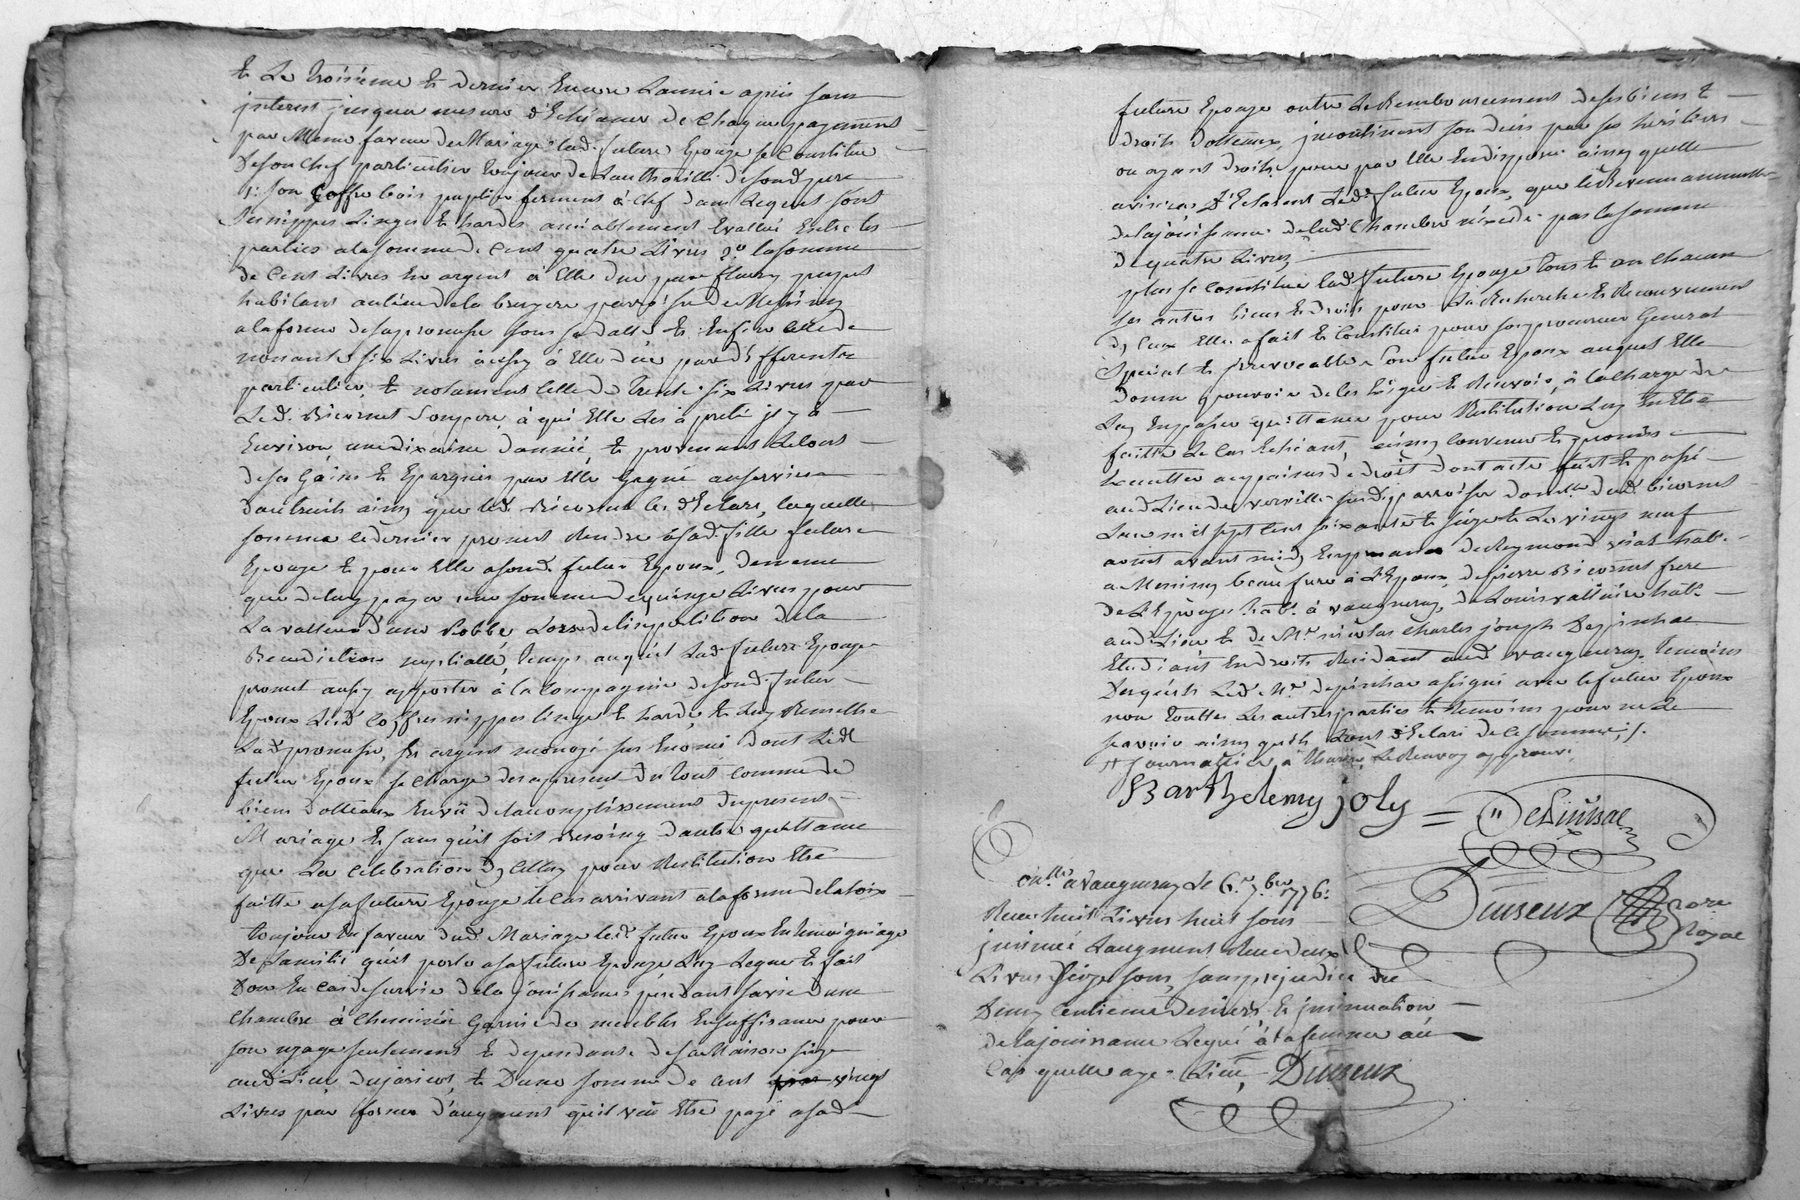 et Le troisieme et dernier encore L'année apres sans
interest jusqu'a mesure d'Echeance de Chaque payement
par Meme faveur de Mariage lad. future Epouze se Constitue
de son Chef particulier toujour de L'authorité de sond. pere
1.º son Coffre bois fermant à Clef dans Lequel sont
Ses nippes Linges et hardes amiablement Evallué Entre les
parties a la somme de Cent quatre Livres 2.º la somme
de Cent Livres En argent à Elle due par fleury
habitant au lieu de la bruyere parroisse de Messimy
a la forme de sa promesse sous sa datte et Enfin Celle de
nonante six Livres aussy à Elle düe par differents
particuliers, et notament Celle de Trente six Livres par
Led. Bicornet son pere, à qui Elle Les à preté il y à
Environ une dixaine d'année, et provenant Le tout
de ses Gains et Epargnes par Elle Gagné au service
d'autruit ainsy que led. Bicornet les d'Eclare, laquelle
somme le dernier promet Rendre à sad. fille future
Epouze et pour Elle a sond. futur Epoux, de meme
que de luy payer une somme de quinze Livres pour
La valleur d'une Robbe Lors de l'inpartition de la
Benediction nuptialle, temps auquel Lad. future Epouze
promet aussy apporter à la Compagnie de sond. futur
Epoux Lesd. Coffre nippes linge et hardes et Luy Remettre
Lad. promesse, et argent monoyé sus Enoncé dont Led.
futur Epoux se Charge des apresent du tout comme de
biens Dotteaux En vüe de l'acomplissement du present
Mariage et sans qu'il soit Besoing d'autre quittance
que La Celebration d'y Celluy pour Restitution Etre
faitte a sa future Epouze le Cas arrivant a la forme de la loix
toujour En faveur dud. Mariage led. futur Epoux En temoigniage
De l'amitié qu'il porte a sa future Epouze Luy Legue et fait
Don En Cas de survie de la jouissance pendant sa vie d'une
Chambre à Cheminée Garnie de meubles En suffisance pour
son uzage seulement et dependante de sa Maison size
aud. Lieu et D'une somme de Cent vingt
Livres par forme d'augment qu'il veut Etre payé a sad.
future Epouze outre Le Rembourcement de ses biens et
droits dotteaux, incontinent son deces par ses heritiers
ou ayant droits pour par Elle En disposer ainsy quelle
avisera D'Eclarent Led. futur Epoux, que le Revenu annuelle
de la jouissance de lad. Chambre n'éxede pas la somme
de quatre Livres
plus se Constitue lad. future Epouze tous et un Chacun
ses autres biens et droits pour La Recherche et Recouvrement
d'y Ceux Elle a fait et Constitué pour son procureur General
Special et irrevocable son futur Epoux auquel Elle
donne pouvoir de les Exiger et Recevoir, à la Charge de
Luy En passer quittance pour Restitution Luy En Etre
faitte Le Cas Echeant, ainsy Convenu et promis
Executter aux peines de droit dont acte fait et passé
aud. Lieu de susd. parroisse domlle dud. bicornet
L'an mil sept Cent soixante et seize et Le vingt neuf
aoust avant midy En presence de Reymond habt.
a Messimy beau frere à L'Epoux, de pierre Bicornet frere
de L'Epouze habt. à vaugneray, de Louis vallüire habt.
aud. Lieu et de Mr. nicolas Charles joseph
Etudiant En droits Residant aud. vaugneray temoins
Desquels Led. Mr. a signé avec le futur Epoux
non touttes Les autres parties et temoins pour ne Le
scavoir ainsy qu'ils L'ont d'Eclaré de Ce sommé ./.
Barthelemy joly
Dutreux
Nore
Royal
Con.llé a vaugneray Le 6.e 7.bre 1776.
Receu huit Livres huit sous
insinué L'augment Receu deux
Livres seize sous, sans prejudice du
Demy Centieme denier et insinuation
de la jouissance Legué à la femme au
Cas quelle aye Lieu, Dutreux